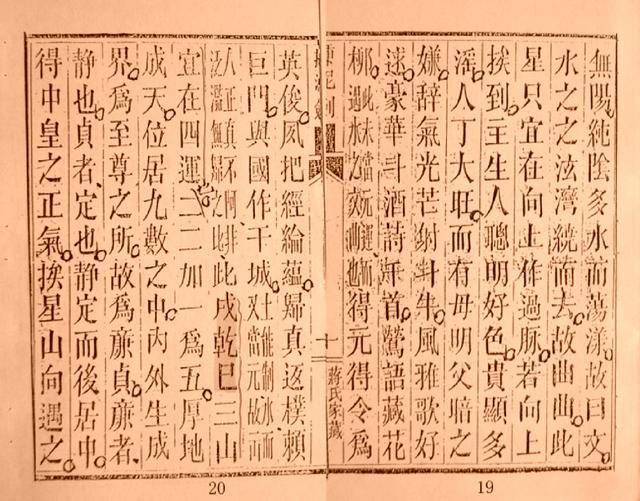 無陽純陰多水而蕩漾故曰文
水之之泫灣繞而去故曲曲此
星只宜在向上作過脉若向上
挨到主生人聰明好色貴顯多
淫人丁大旺而有毋明父暗之
嫌辭氣光芒射斗牛風雅歌好
逑豪華斗酒詩千首鶯語藏花
柳得元得令爲
十
蔣氏家藏
英俊夙把經綸蘊歸真返樸賴
巨門與國作干城又土能制水而當元故
八正真不阿非泛濫無歸之比此戌乾巳三山
宜在四運二二加一爲五厚地
成天位居九數之中内外生成
界爲至尊之所故爲亷貞亷者
静也貞者定也静定而後居中
得中皇之正氣挨星山向遇之
20
19